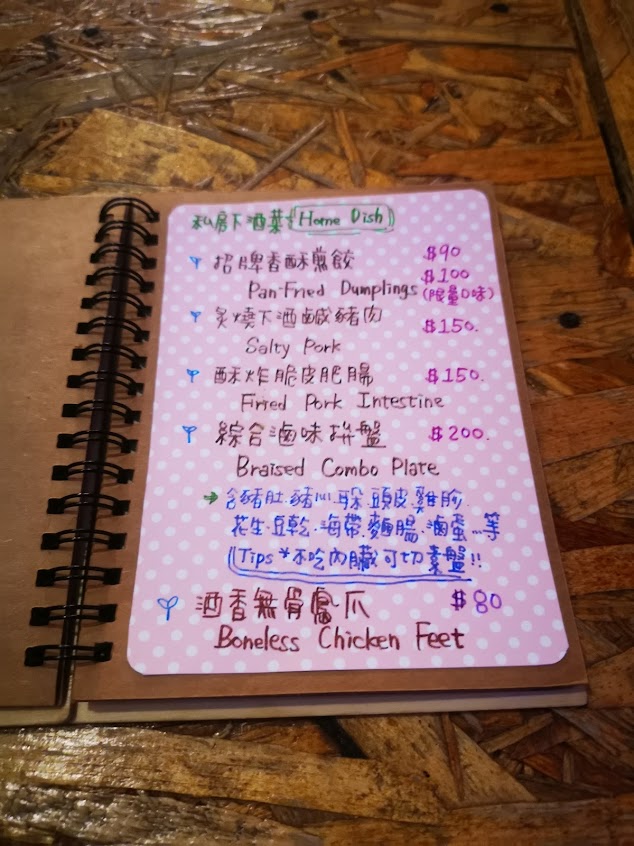 私房下酒菜 Home Dish
招牌香酥煎餃 $90
$100
Pan-Fried Dumplings (限量口味)
炙燒下酒鹹豬肉 $150.
Salty Pork
酥炸脆皮肥腸 $150.
Fried Pork Intestine
綜合滷味拼盤 $200.
Braised Combo Plate
→ 含豬肚.豬心.耳朵.頭皮.雞胗.
花生.豆乾.海帶.麵腸.滷蛋...等
Tips *不吃內臟可切素盤!!
酒香無骨鳳爪 $80
Boneless Chicken Feet